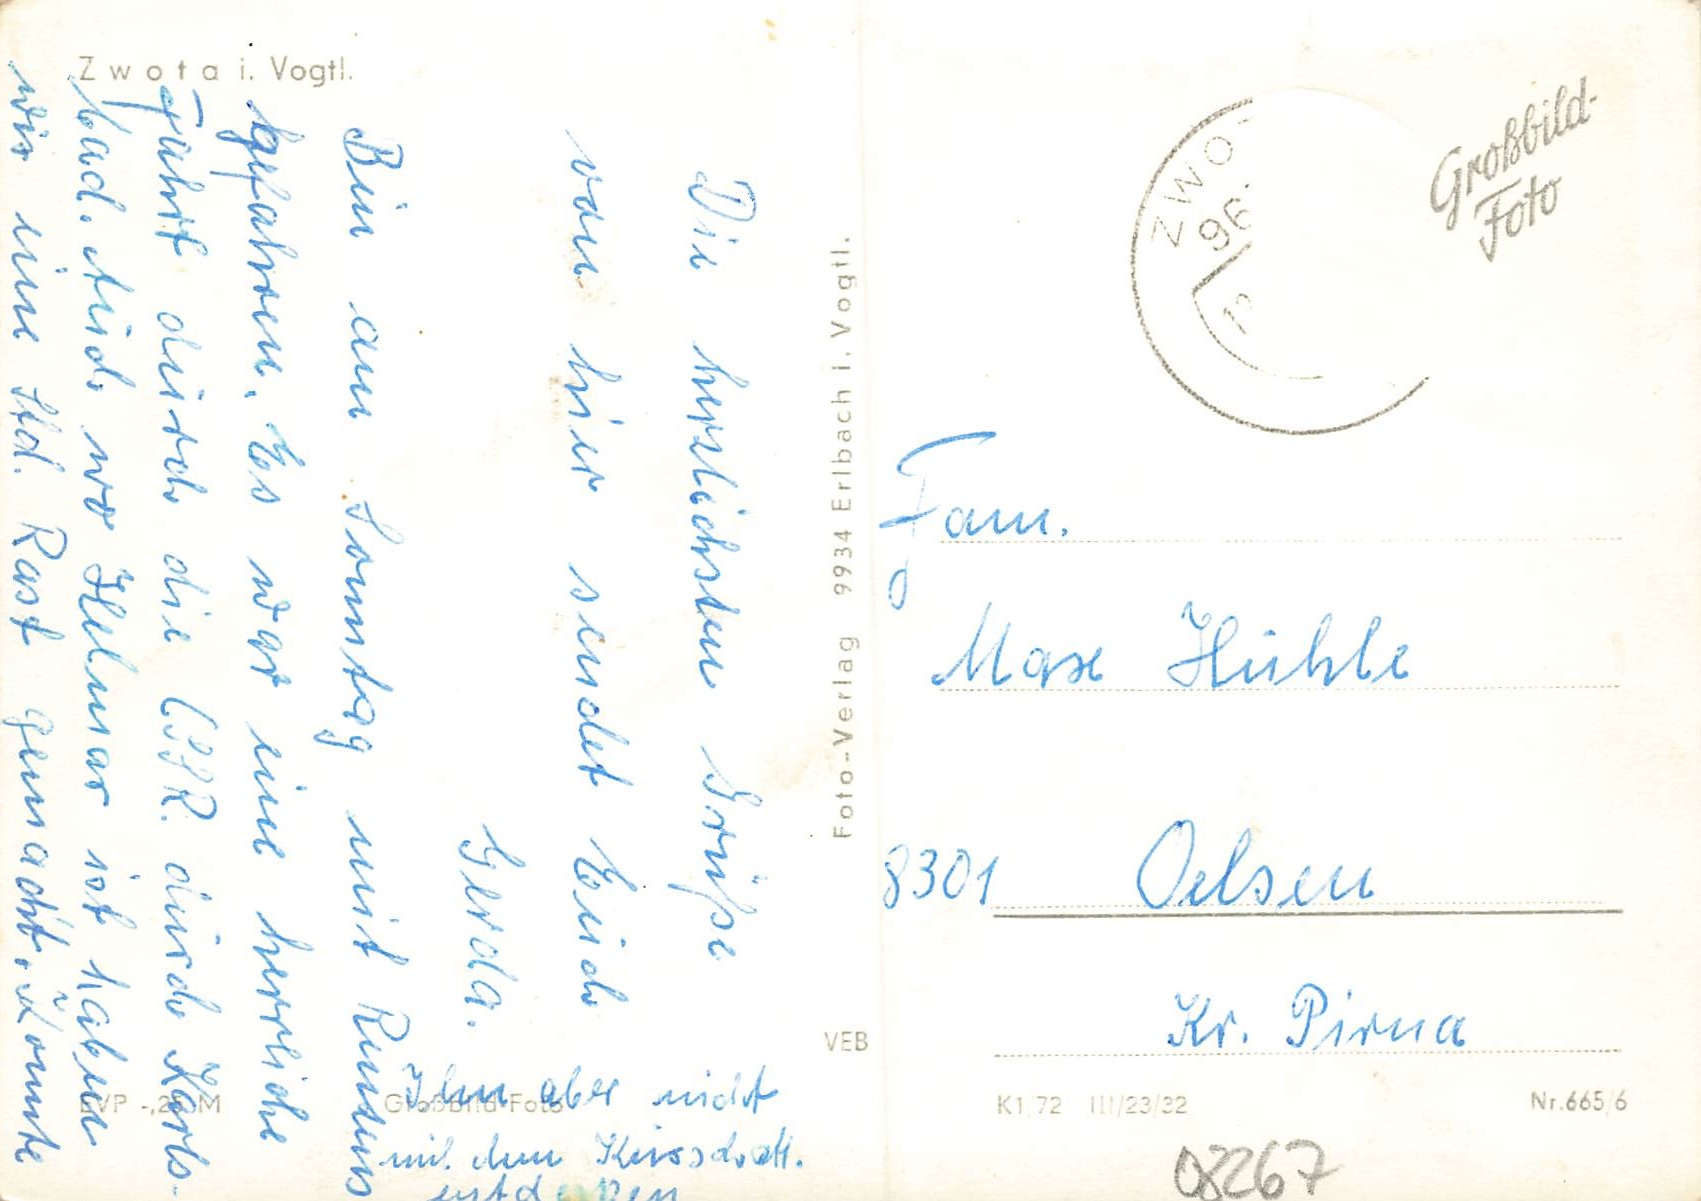 Zwota i. Vogtl.
Die herzlichsten Grüße
von hier sendet Euch
Gerda.
Bin am Sonntag mit
gefahren. Es war eine herrliche
Fahrt durch die ČSSR. durch Karls-
bad. Auch wo Helmar ist haben
wir eine Std. Rast gemacht. Konnte
Ihn aber nicht
mit dem
entdecken
EVP -,25 M
Großbild-Foto
Foto-Verlag 9934 Erlbach i. Vogtl.
VEB
ZWO
96
Großbild-
Foto
Fam.
Max Hühle
8301 Oelsen
Kr. Pirna
K1/72 III/23/32
Nr. 665/6
08267